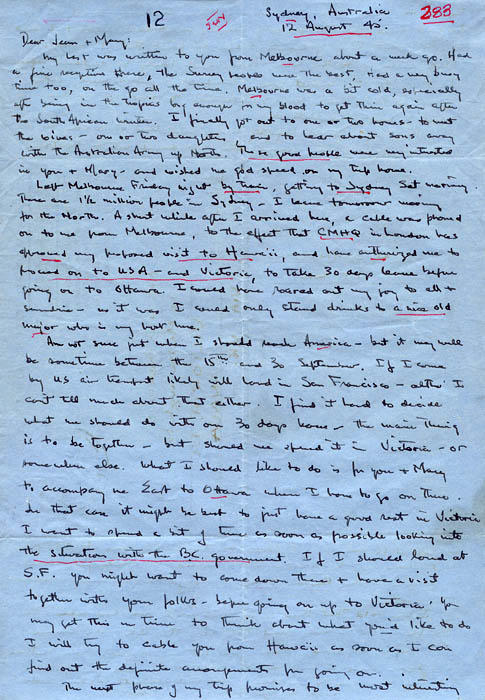 12
Sydney, Australia
388
12 August 45.
Dear Jean + Mary:
My last was written to you from Melbourne about a week ago. Had
a fine reception there, the Survey people were the best. Had a very busy
time too, on the go all the time. Melbourne was a bit cold, especially
after being in the tropics long enough for my blood to get thin again after
the South African winter. I finally got out to one or two houses - to meet
the wives - one or two daughters, and to hear about sons away
with the Australian Army up North. These good people were very interested
in you + Mary - and wished me god speed on my trip home.
Left Melbourne Friday night by train, getting to Sydney Sat. morning.
There are 1½ million people in Sydney. I leave tomorrow morning
for the North. A short while after I arrived here, a cable was phoned
on to me from Melbourne, to the effect that CMHQ in London has
approved my proposed visit to Hawaii, and have authorized me to
proceed on to USA - and Victoria to take 30 days leave before
going on to Ottawa. I could have roared out my joy to all +
sundrie - as it was I could only stand drinks to a nice old
major who is my host here.
Am not sure just when I should reach America - but it may well
be sometime between the 15th and 30 September. If I come
by US air transport likely will land in San Francisco - altho' I
can't tell much about that either. I find it hard to decide
what we should do with our 30 days leave - the main thing
is to be together - but should we spend it in Victoria - or
somewhere else. What I should like to do is for you + Mary
to accompany me East to Ottawa when I have to go on there.
In that case it might be best to just have a good rest in Victoria
I want to spend a bit of time as soon as possible looking into
the situation with the B.C. government. If I should land at
S.F. you might want to come down there + have a visit
together with your folks - before going on up to Victoria. You
may get this in time to think about what you'd like to do
I will try to cable you from Hawaii as soon as I can
find out the definite arrangements for going on.
The next phase of my trip promises to be most interesting